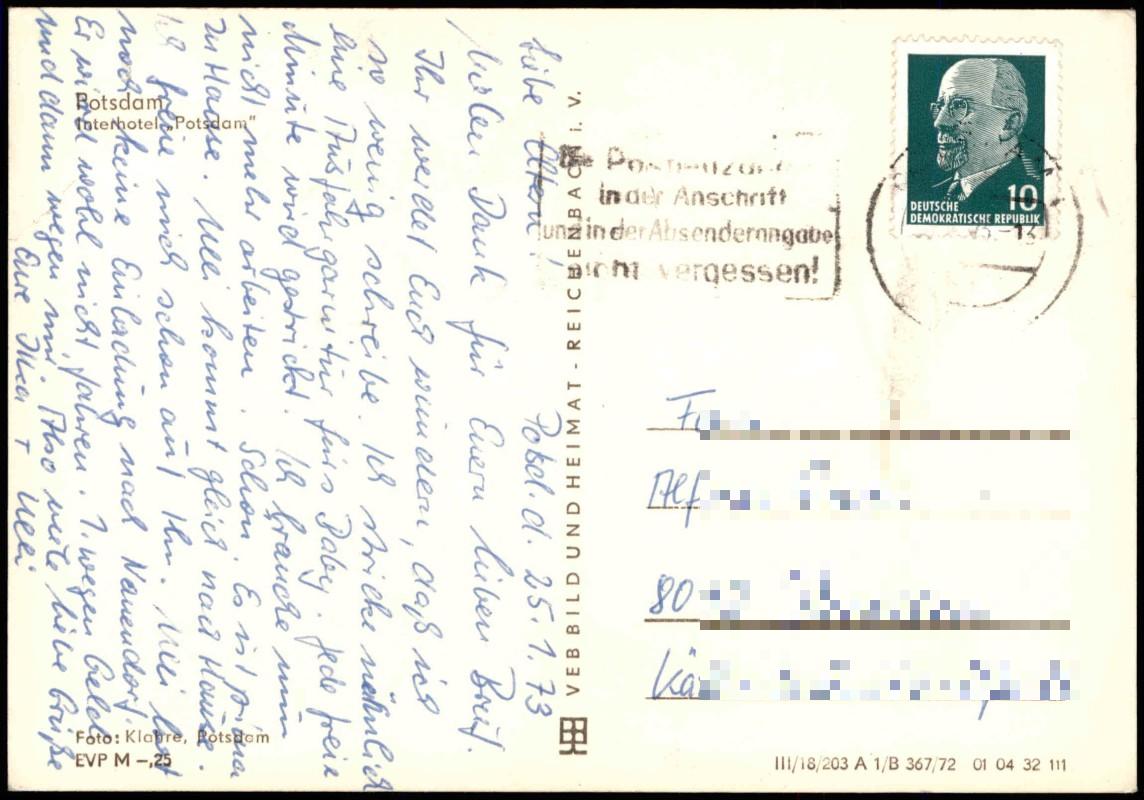 Potsdam
Interhotel „Potsdam"
Liebe Eltern! Potsd. d. 25.1.73
vielen Dank für Euern lieben Brief.
Ihr werdet Euch wundern, daß ich
so wenig schreibe. Ich stricke nämlich
eine Ausfahrgarnitur fürs Baby. Jede freie
Minute wird gestrickt. Ich brauche nun
nicht mehr arbeiten. Schön. Es ist prima
zu Hause. Ulli kommt gleich nach Hause.
Ich freue mich schon auf ihn. Ulli hat
noch keine Einladung nach Nauendorf.
Er wird wohl nicht fahren. 1. wegen Geld
und dann wegen mir. Also viele liebe Grüße
Eure + Ulli
Foto: Klahre, Potsdam
EVP M –,25
VEB BILD UND HEIMAT - REICHENBACH i. V.
Die Postleitzahl
in der Anschrift
und in der Absenderangabe
nicht vergessen!
10
DEUTSCHE
DEMOKRATISCHE REPUBLIK
Alf
80
Kä
III/18/203 A 1/B 367/72 01 04 32 111